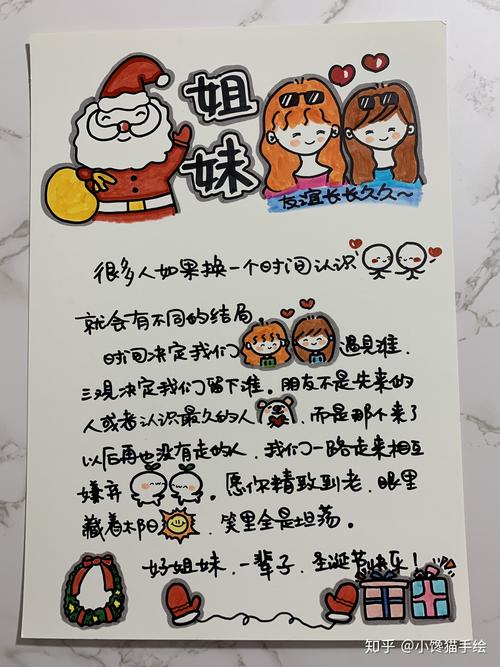 姐
妹
友谊长长久久~
很多人如果换一个时间认识
就会有不同的结局
时间决定我们遇見谁.
三观决定我们留下谁.朋友不是先来的
人或者认识最久的人,而是那个来了
以后再也没有走的人,我们一路走来相互
嫌弃。愿你精致到老.眼里
藏着太阳笑里全是坦荡。
好姐妹,一辈子.圣诞节快乐!
知乎 @小馋猫手绘